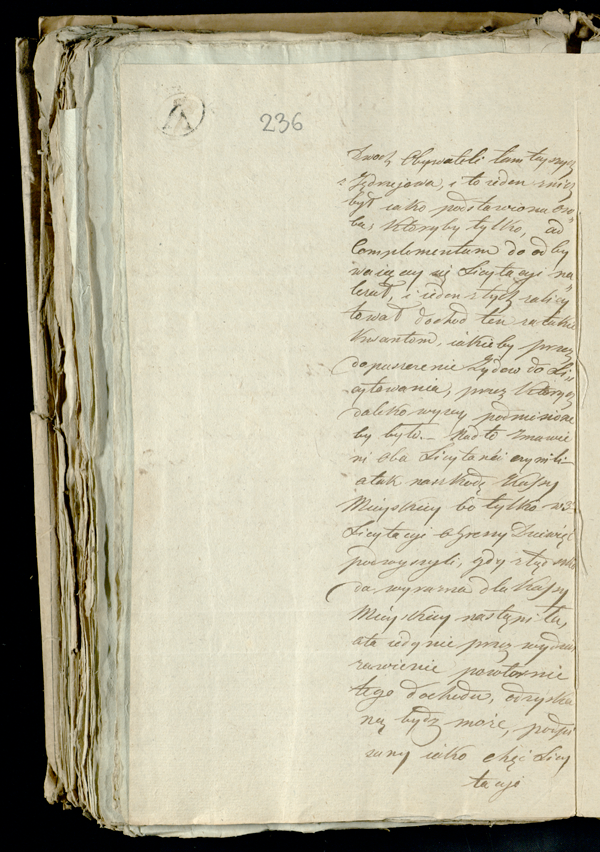 236
Dwoch Obywateli tamtayszych
z Jędrzejowa, i to ieden z nich
był iako podstawiona oso"
ba; któryby tylko, ad
Complementum do odby
waiącey się Licytacyi na"
leżał, i ieden z tych zalicy
tował dochód ten za takie
Kwantum, iakieby przez
dopuszczenie Żydów do Li"
cytowania, przez których
daleko wyżey podniesione
by było. Nad to zmowie
ni oba Licytanci czynili
a tak na szkodę Kassy
Mieyskiey bo tylko w 3
Licytacyi o Groszy Dziewięć
podwyższyli, gdy z tąd szko
da, wyraźna dla Kassy
Mieyskiey nastąpiła,
a ta iedynie przez wydzier
żawienie powtórnie
tego dochodu, odzyska
ną bydź może, podpi
sany iako chęć Licy
tacyi